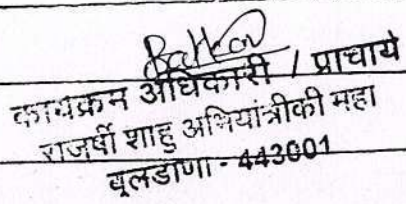 कार्यक्रम अधिकारी / प्राचार्य
राजर्षी शाहु अभियांत्रीकी महा
बुलडाणा - 443001